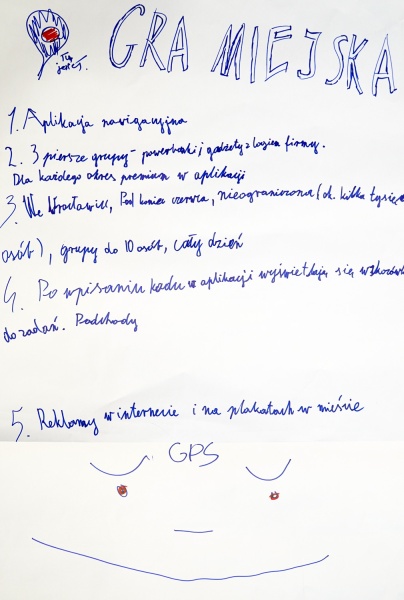 Tu jesteś.
GRA MIEJSKA
1. Aplikacja nawigacyjna
2. 3 piersze grupy - powerbanki, gadżety z logiem firmy.
Dla każdego okres premium w aplikacji
3. We Wrocławiu, Pod koniec czerwca, nieograniczona (ok. kilka tysięcy
osób), grupy do 10 osób, cały dzień
4. Po wpisaniu kodu w aplikacji wyświetlają się wskazówki
do zadań. Podchody
5. Reklamy w internecie i na plakatach w mieście
GPS